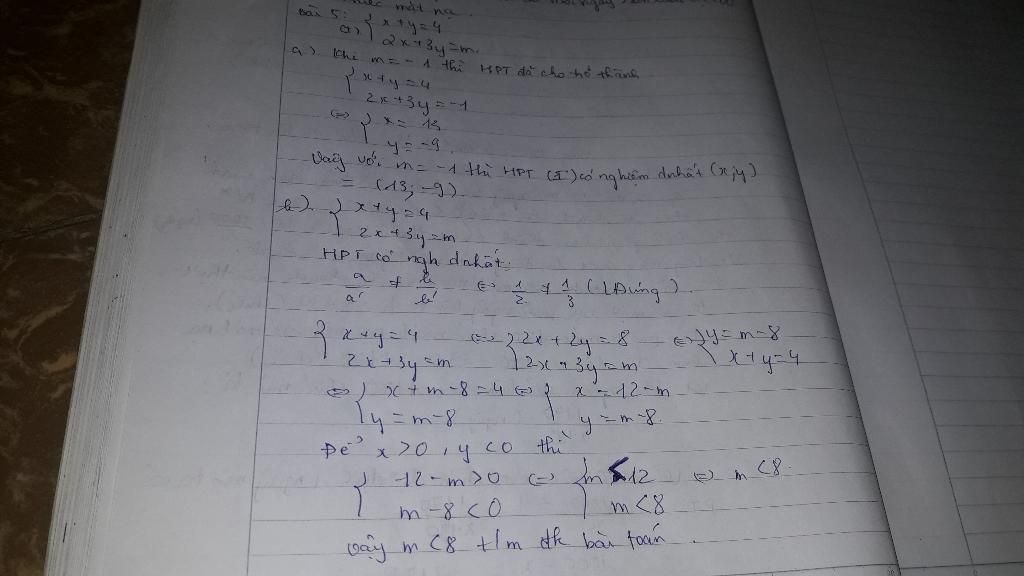 bài 5: { x + y = 4
a) { 2x + 3y = m.
a) Khi m = -1 thì HPT đã cho trở thành
{ x + y = 4
2x + 3y = -1
⇔ { x = 13
y = -9.
Vậy với m = -1 thì HPT (I) có nghiệm dnhất (x;y)
= (13; -9)
b) { x + y = 4
2x + 3y = m
HPT có ngh dnhất:
a/a' ≠ b/b' ⇔ 1/2 ≠ 1/3 (LĐúng)
{ x + y = 4 ⇔ { 2x + 2y = 8 ⇔ { y = m - 8
2x + 3y = m 2x + 3y = m x + y = 4
⇔ { x + m - 8 = 4 ⇔ { x = 12 - m
y = m - 8 y = m - 8.
Để x > 0, y < 0 thì
{ 12 - m > 0 ⇔ { m < 12 ⇔ m < 8.
m - 8 < 0 m < 8
Vậy m < 8 t/m đk bài toán.